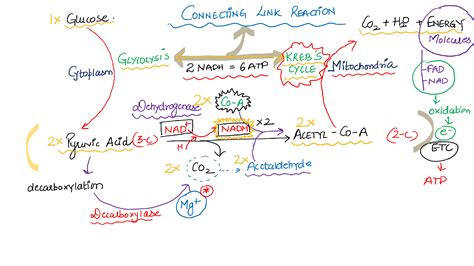 CONNECTING LINK REACTION
1x Glucose.
CO2 + H2O + ENERGY
Molecules
GLYCOLYSIS
2 NADH = 6 ATP
KREB'S
CYCLE
Mitochondria
Cytoplasm
FAD
NAD
oxidation
e-
ETC
ATP
Dehydrogenase
2x Co-A
2x Pyruvic Acid (3-C)
NAD+
H+
NADH
x2
2x ACETYL - Co-A
(2-C)
2x CO2
2x Acetaldehyde
decarboxylation
Decarboxylase
Mg+
*